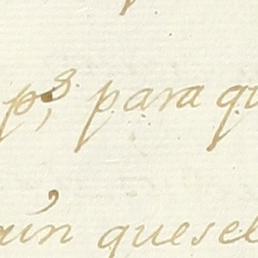 p.s para qu
un quesel